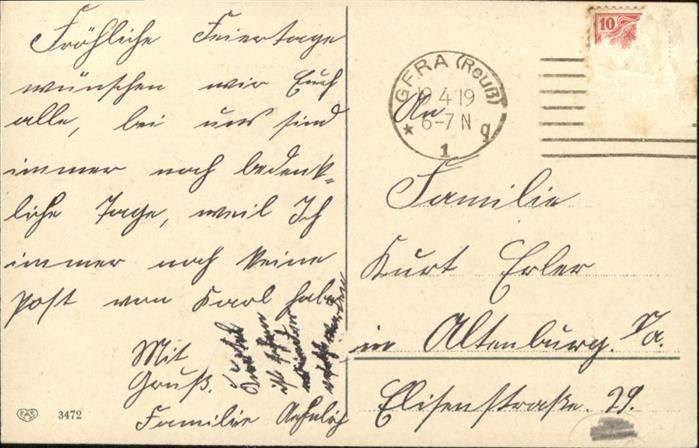 Fröhliche Feiertage
wünschen wir Euch
alle, bei uns sind
immer noch bedenk-
liche Tage, weil Ich
immer noch keine
Post von Karl habe
Mit
Gruß.
Familie
GERA (Reuß)
19 4 19
6-7 N
* 1 g
10
An
Familie
Kurt Erler
in Altenburg. S/a.
Elisenstraße. 29.
3472